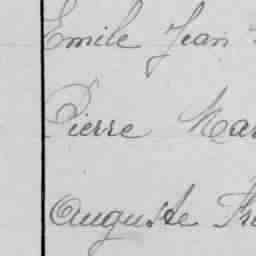 Emile Jean
Pierre Mar
Auguste Fr